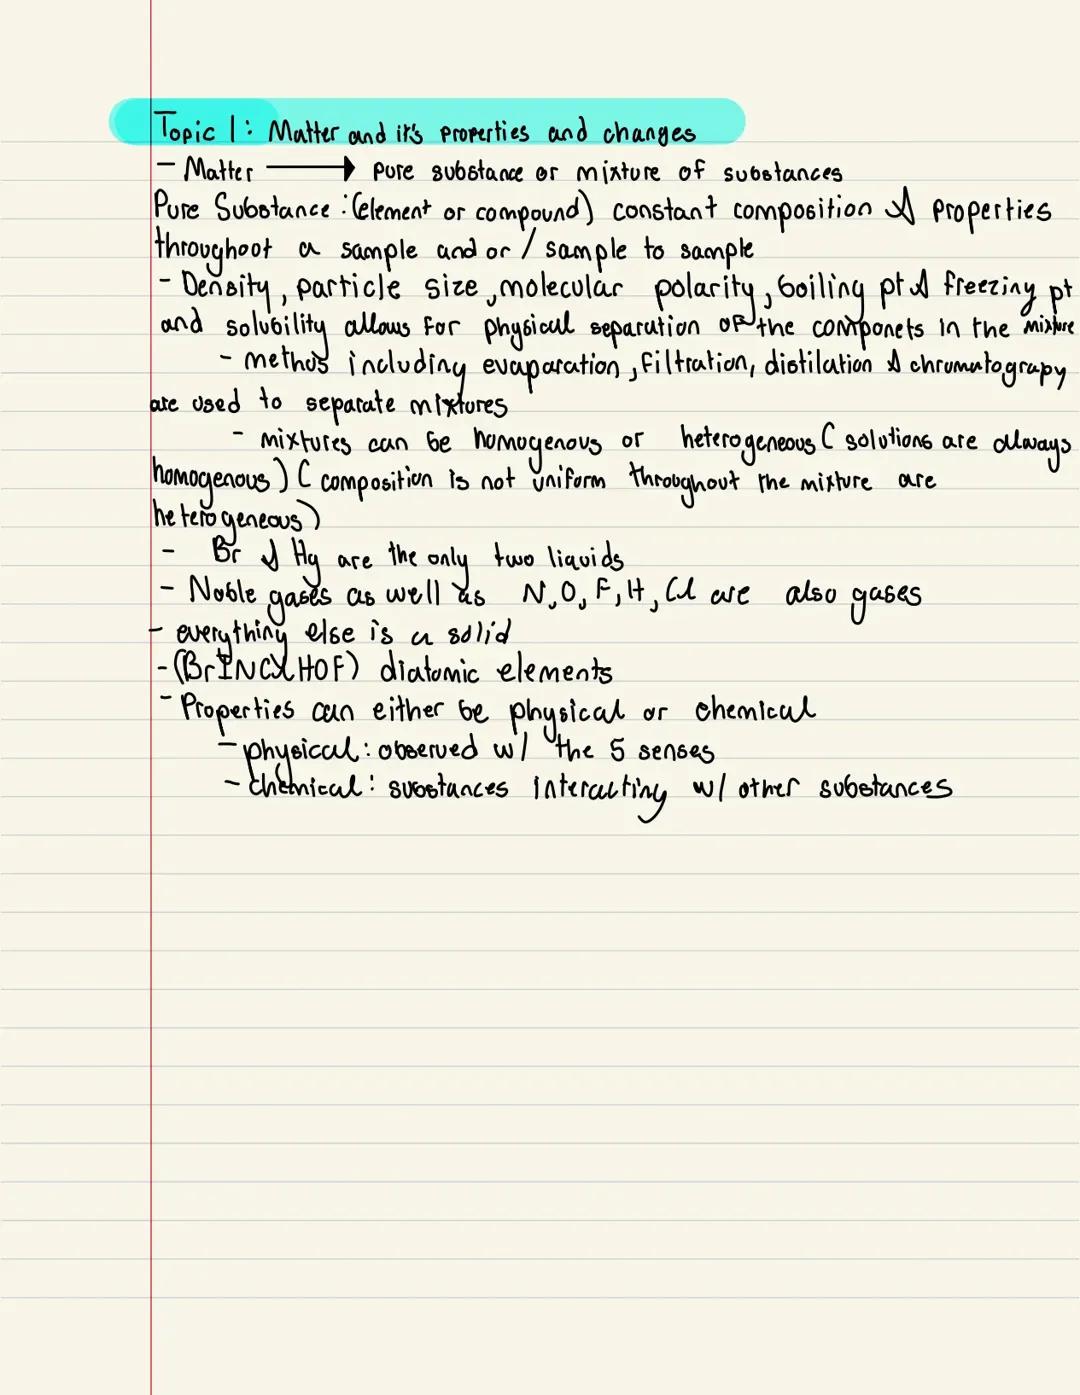 Topic 1: Matter and it's properties and changes
- Matter → pure substance or mixture of substances
Pure Substance: (element or compound) constant composition & properties
throughout a sample and or / sample to sample
- Density, particle size, molecular polarity, boiling pt & freezing pt
and solubility allows for physical separation of the componets in the mixture
- methos including evaparation, filtration, distilation & chromatograpy
are used to separate mixtures
- mixtures can be homogenous or heterogeneous ( solutions are always
homogenous ) ( composition is not uniform throughout the mixture are
heterogeneous)
- Br & Hg are the only two liquids
- Noble gases as well as N, O, F, H, Cl are also gases
- everything else is a solid
- (BrINClHOF) diatomic elements
- Properties can either be physical or chemical
- physical: observed w/ the 5 senses
- chemical: substances interacting w/ other substances